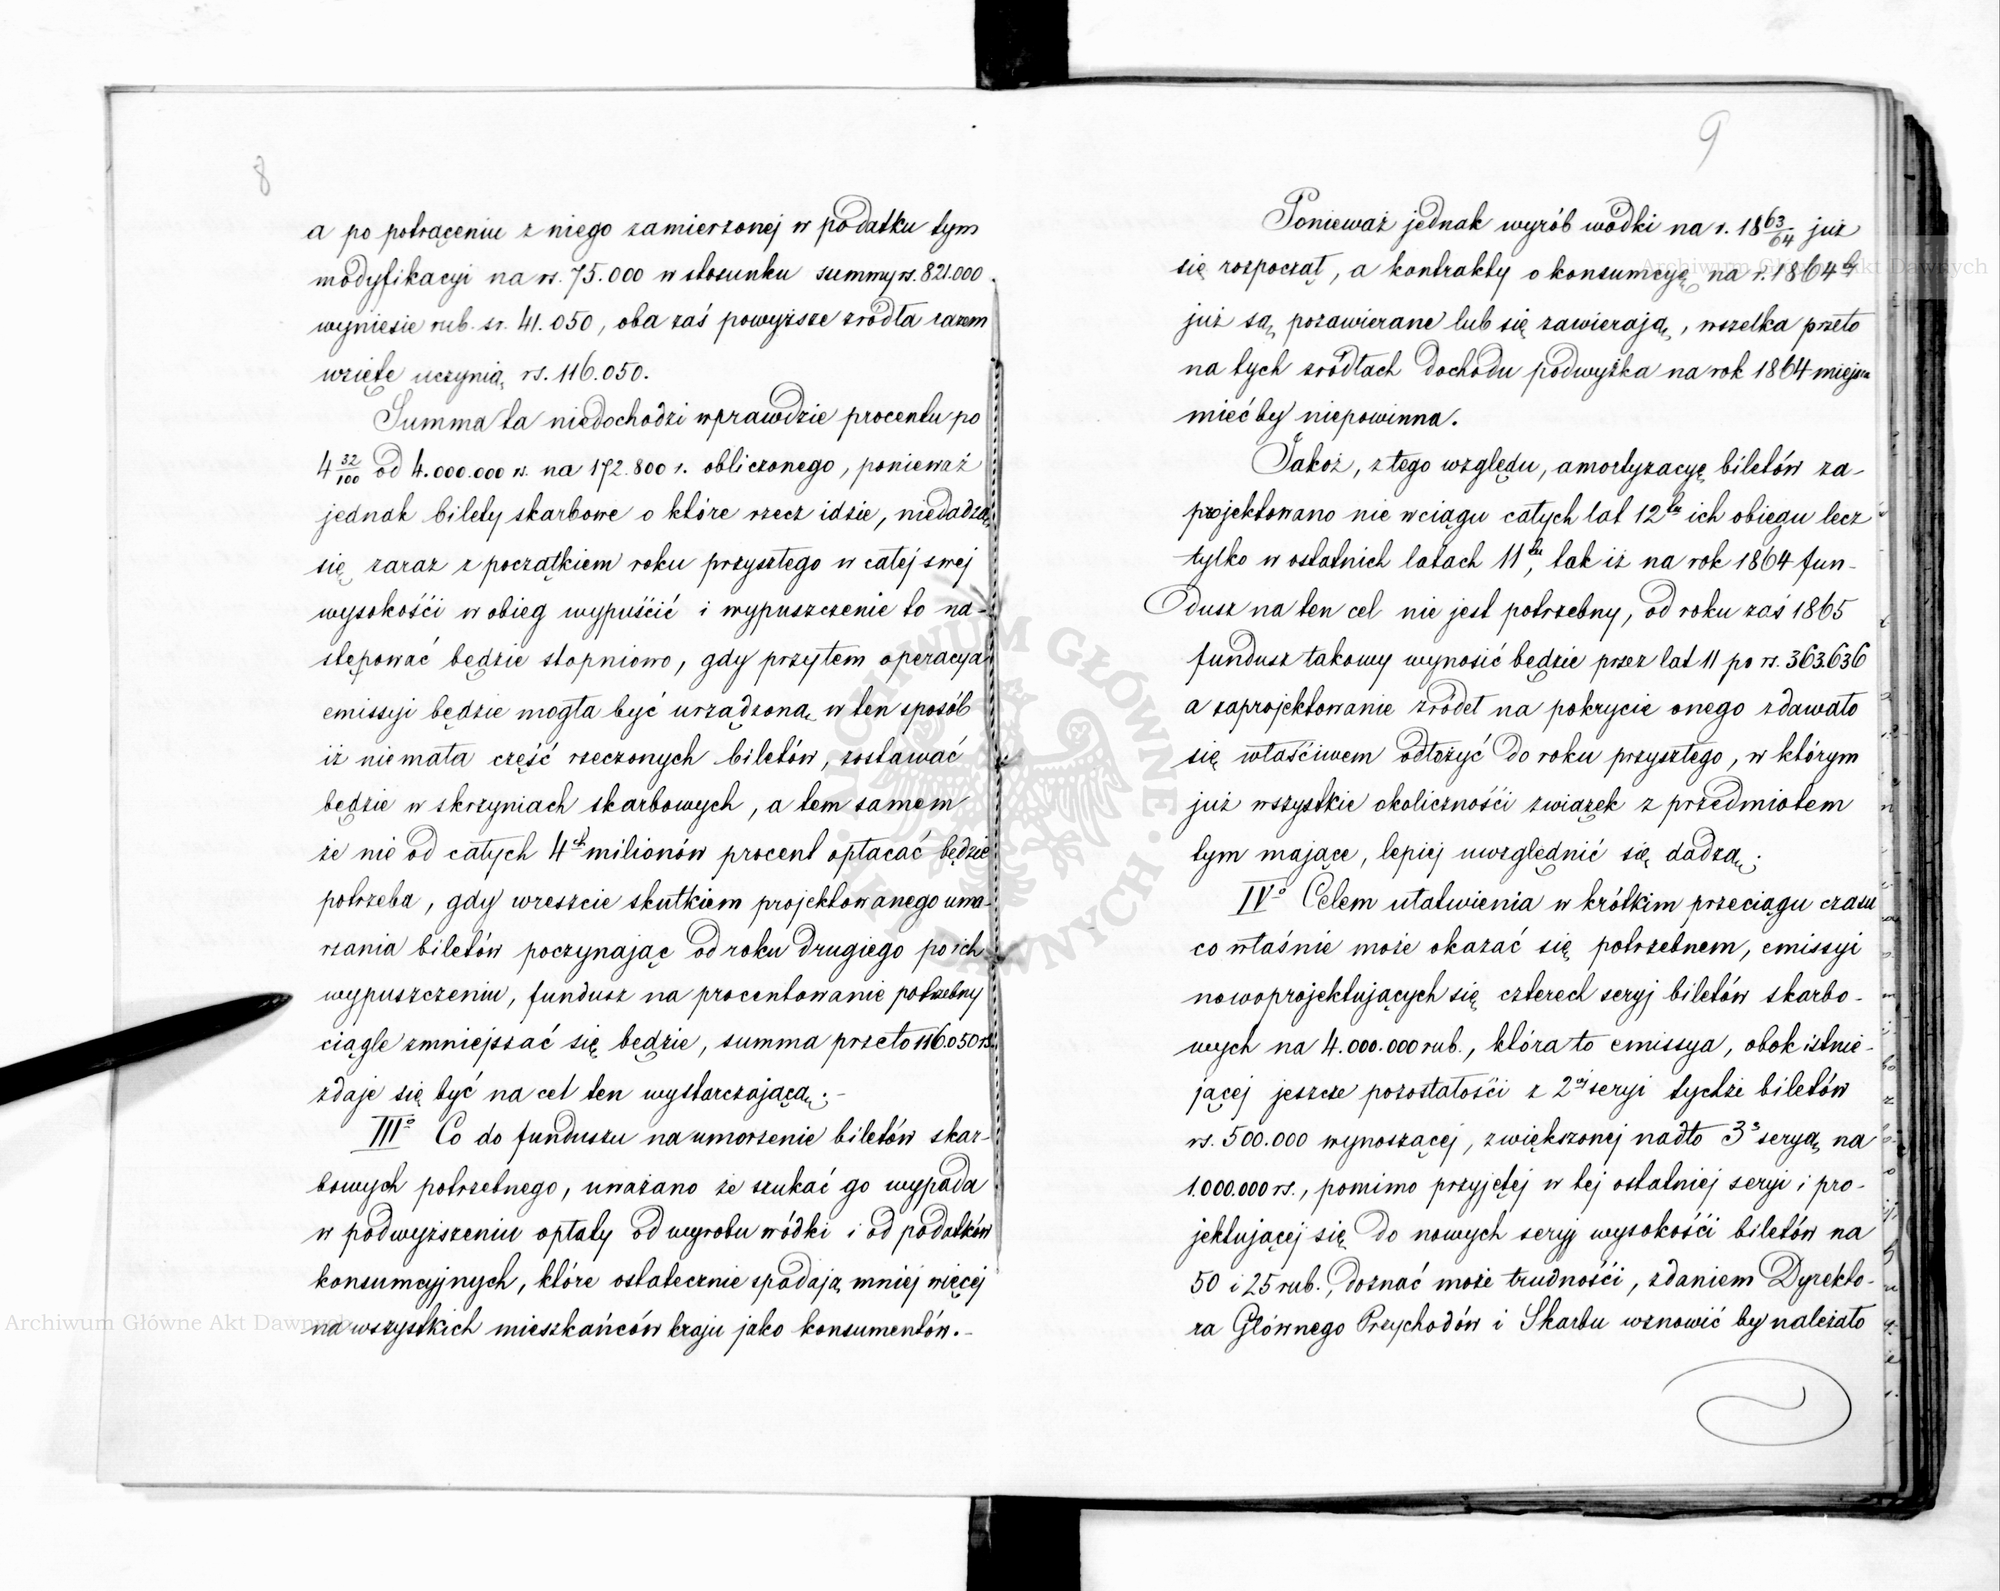 8
a po potrąceniu z niego zamierzonej w podatku tym
modyfikacyi na rs. 75.000 w stosunku summy rs. 821.000
wyniesie rub. sr. 41.050, oba zaś powyższe źródła razem
wzięte uczynią rs. 116.050.
Summa ta niedochodzi wprawdzie procentu po
4 32/100 od 4.000.000 rs. na 172.800 r. obliczonego, ponieważ
jednak bilety skarbowe o które rzecz idzie, niedadzą
się zaraz z początkiem roku przyszłego w całej swej
wysokośći w obieg wypuśćić i wypuszczenie to na-
stępować będzie stopniowo, gdy przytem operacya
emissyi będzie mogła być urządzoną w ten sposób
iż niemała część rzeczonych biletów, zostawać
będzie w skrzyniach skarbowych, a tem samem
że nie od całych 4ch milionów procent opłacać będzie
potrzeba, gdy wreszcie skutkiem projektowanego uma-
rzania biletów poczynając od roku drugiego po ich
wypuszczeniu, fundusz na procentowanie potrzebny
ciągle zmniejszać się będzie, summa przeto 116.050 rs.
zdaje się być na cel ten wystarczającą;-
IIIo Co do funduszu na umorzenie biletów skar-
bowych potrzebnego, uważano że szukać go wypada
w podwyższeniu opłaty od wyrobu wódki i od podatków
konsumcyjnych, które ostatecznie spadają mniej więcej
na wszystkich mieszkańców kraju jako konsumentów.-
9
Ponieważ jednak wyrób wódki na r. 1863/64 już
się rozpoczął, a kontrakty o konsumcyę na r. 1864ty
już są pozawierane lub się zawierają, wszelka przeto
na tych źródłach dochodu podwyżka na rok 1864 miejsca
mieć by niepowinna.
Jakoż, z tego względu, amortyzacyę biletów za-
projektowano nie wciągu całych lat 12tu ich obiegu lecz
tylko w ostatnich latach 11tu, tak iż na rok 1864 fun-
dusz na ten cel nie jest potrzebny, od roku zaś 1865
fundusz takowy wynosić będzie przez lat 11 po rs. 363.636
a zaprojektowanie źródeł na pokrycie onego zdawało
się właśćiwem odłożyć do roku przyszłego, w którym
już wszystkie okolicznośći związek z przedmiotem
tym mające, lepiej uwzględnić się dadzą;
IVo Celem ułatwienia w krótkim przeciągu czasu
co właśnie może okazać się potrzebnem, emissyi
nowoprojektujących się czterech seryj biletów skarbo-
wych na 4.000.000 rub., która to emissya, obok istnie-
jącej jeszcze pozostałośći z 2ej seryi tychże biletów
rs. 500.000 wynoszącej, zwiększonej nadto 3ą seryą na
1.000.000 rs., pomimo przyjętej w tej ostatniej seryi i pro-
jektującej się do nowych seryj wysokośći biletów na
50 i 25 rub., doznać może trudnośći, zdaniem Dyrekto-
ra Głównego Przychodów i Skarbu wznowić by należało
Archiwum Główne Akt Dawnych
Archiwum Główne Akt Dawnych
ARCHIWUM GŁÓWNE AKT DAWNYCH